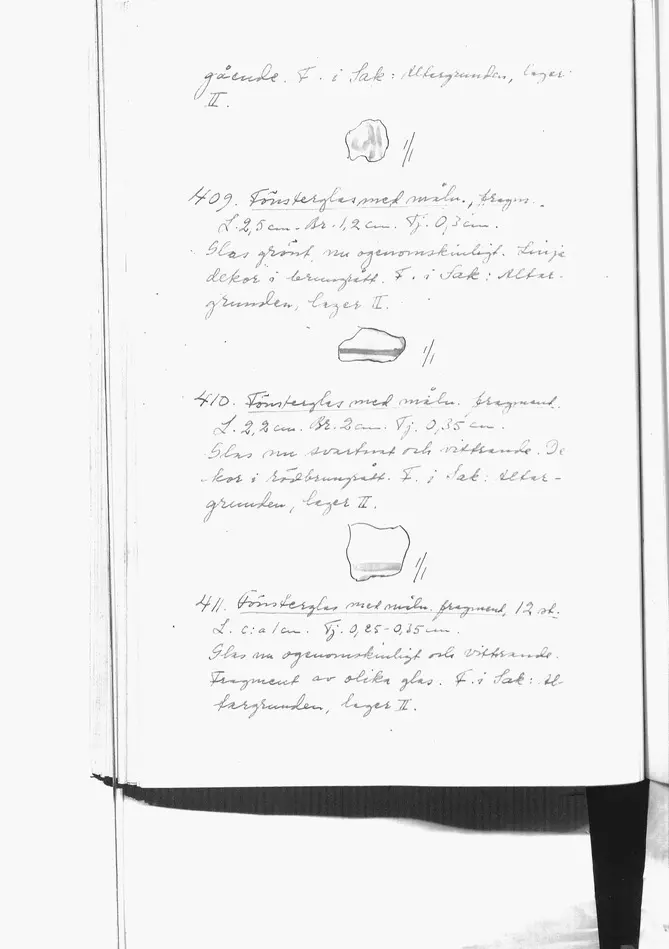 gående. F. i Sak: Altargrunden, lager
II.
1/1
409. Fönsterglas med måln., fragm.
L. 2,5 cm. Br. 1,2 cm. Tj. 0,3 cm.
Glas grönt, nu ogenomskinligt. Linje
dekor i brungrått. F. i Sak: Altar-
grunden, lager II.
1/1
410. Fönsterglas med måln. fragment.
L. 2,2 cm. Br. 2 cm. Tj. 0,35 cm.
Glas nu svartnat och vittrande. De
kor i rödbrungrått. F. i Sak: Altar-
grunden, lager II.
1/1
411. Fönsterglas med måln. fragment, 12 st.
L. c:a 1 cm. Tj. 0,25-0,35 cm.
Glas nu ogenomskinligt och vittrande.
Fragment av olika glas. F. i Sak: Al-
targrunden, lager II.